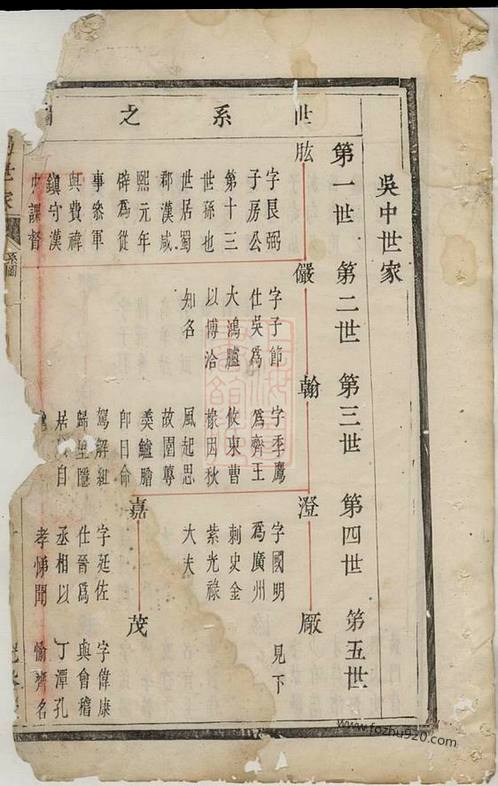 世系之
吳中世家
第一世 第二世 第三世 第四世 第五世
肱
字良弼
子房公
第十三
世孫也
世居蜀
郡漢咸
熙元年
辟為從
事參軍
與費禕
鎮守漢
中謀督
儼
字子節
仕吳為
大鴻臚
以博洽
知名
翰
字季鷹
為齊王
攸東曹
椽因秋
風起思
故園蓴
羮鱸膾
即日命
駕解組
歸里隱
居自
澄
字國明
為廣州
刺史金
紫光祿
大夫
嘉
字延佐
仕晉為
丞相以
孝悌聞
厰
見下
茂
字偉康
與會稽
丁潭孔
愉齊名
世家
系圖
一
www.fozhu920.com